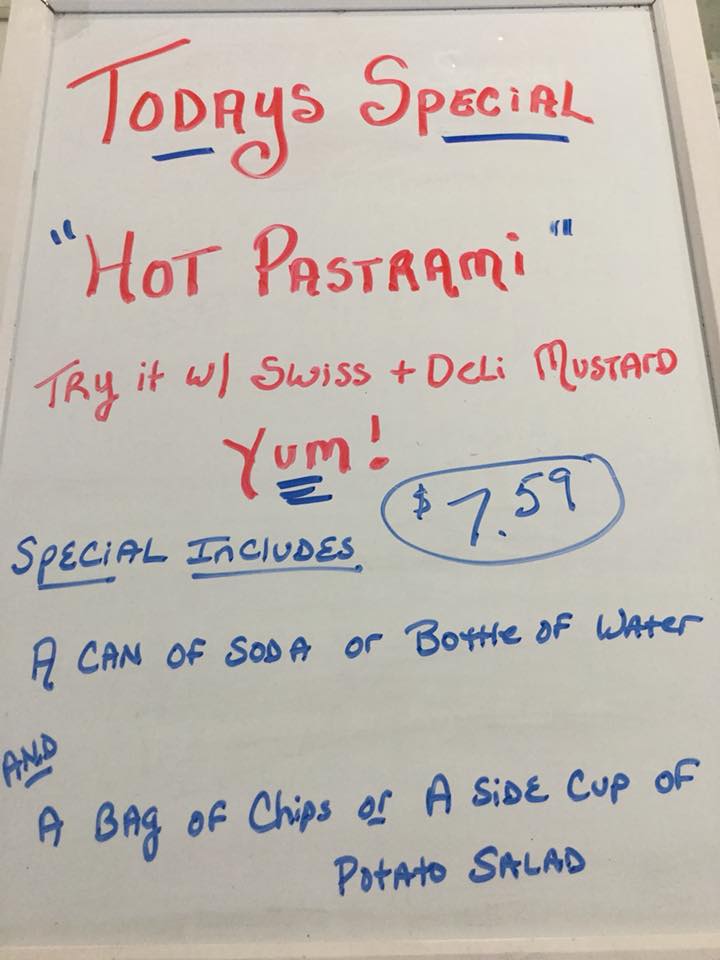 TODAYS SPECIAL
"HOT PASTRAMI"
TRY it w/ SWISS + DELI MUSTARD
YUM!
$7.59
SPECIAL INCLUDES
A CAN OF SODA or Bottle of Water
AND
A BAg of Chips or A SIDE CUP OF
Potato SALAD